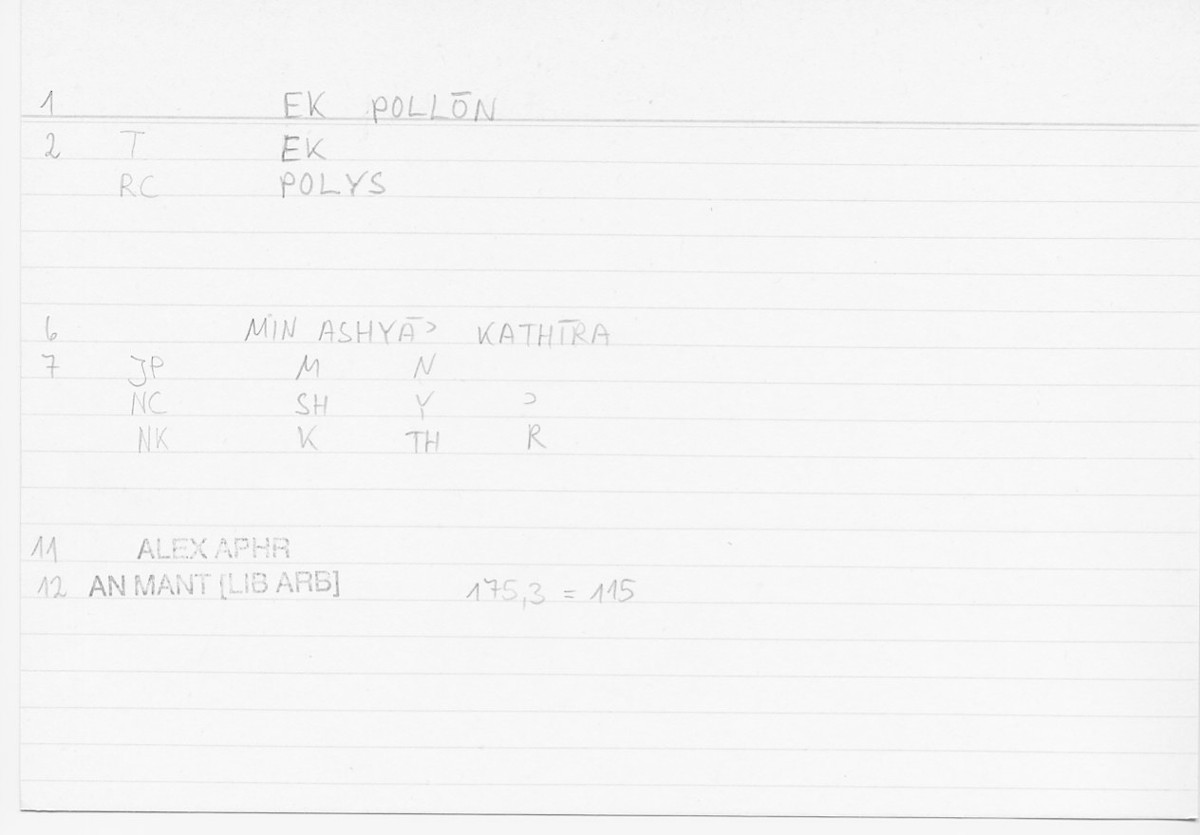 1 EK POLLŌN
2 T EK
RC POLYS
6 MIN ASHYĀʾ KATHĪRA
7 JP M N
NC SH Y ʾ
NK K TH R
11 ALEX APHR
12 AN MANT [LIB ARB] 175,3 = 115